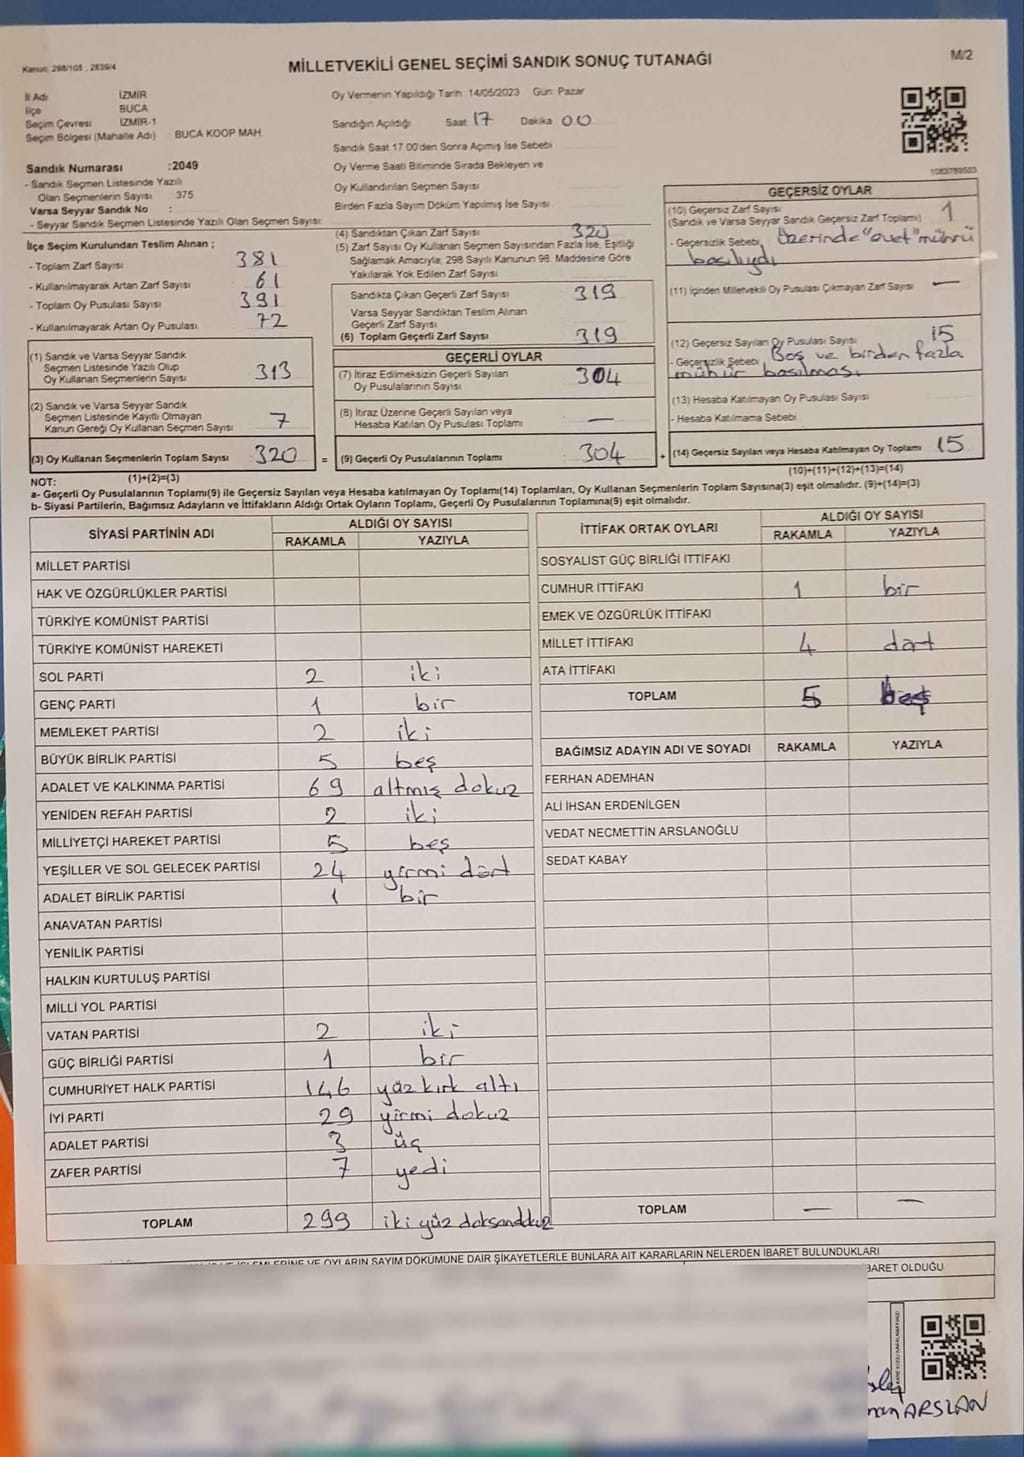 Kanun: 298/105 , 2839/4
MİLLETVEKİLİ GENEL SEÇİMİ SANDIK SONUÇ TUTANAĞI
M/2
İl Adı İZMİR
İlçe BUCA
Seçim Çevresi İZMİR-1
Seçim Bölgesi (Mahalle Adı) BUCA KOOP MAH.
Oy Vermenin Yapıldığı Tarih 14/05/2023 Gün: Pazar
Sandığın Açıldığı Saat 17 Dakika 00
Sandık Saat 17 00'den Sonra Açılmış İse Sebebi
Oy Verme Saati Bitiminde Sırada Bekleyen ve
Oy Kullandırılan Seçmen Sayısı
Birden Fazla Sayım Döküm Yapılmış İse Sayısı
1083789503
Sandık Numarası :2049
- Sandık Seçmen Listesinde Yazılı
Olan Seçmenlerin Sayısı : 375
Varsa Seyyar Sandık No :
- Seyyar Sandık Seçmen Listesinde Yazılı Olan Seçmen Sayısı:
İlçe Seçim Kurulundan Teslim Alınan ;
- Toplam Zarf Sayısı 381
- Kullanılmayarak Artan Zarf Sayısı 61
- Toplam Oy Pusulası Sayısı 391
- Kullanılmayarak Artan Oy Pusulası 72
(1) Sandık ve Varsa Seyyar Sandık
Seçmen Listesinde Yazılı Olup
Oy Kullanan Seçmenlerin Sayısı 313
(2) Sandık ve Varsa Seyyar Sandık
Seçmen Listesinde Kayıtlı Olmayan
Kanun Gereği Oy Kullanan Seçmen Sayısı 7
(3) Oy Kullanan Seçmenlerin Toplam Sayısı 320 =
(1)+(2)=(3)
(4) Sandıktan Çıkan Zarf Sayısı 320
(5) Zarf Sayısı Oy Kullanan Seçmen Sayısından Fazla İse, Eşitliği
Sağlamak Amacıyla; 298 Sayılı Kanunun 98. Maddesine Göre
Yakılarak Yok Edilen Zarf Sayısı
Sandıkta Çıkan Geçerli Zarf Sayısı 319
Varsa Seyyar Sandıktan Teslim Alınan
Geçerli Zarf Sayısı
(6) Toplam Geçerli Zarf Sayısı 319
GEÇERLİ OYLAR
(7) İtiraz Edilmeksizin Geçerli Sayılan
Oy Pusulalarının Sayısı 304
(8) İtiraz Üzerine Geçerli Sayılan veya
Hesaba Katılan Oy Pusulası Toplamı —
(9) Geçerli Oy Pusulalarının Toplamı 304 +
GEÇERSİZ OYLAR
(10) Geçersiz Zarf Sayısı 1
(Sandık ve Varsa Seyyar Sandık Geçersiz Zarf Toplamı)
- Geçersizlik Sebebi üzerinde "evet" mührü
basılıydı
(11) İçinden Milletvekili Oy Pusulası Çıkmayan Zarf Sayısı —
(12) Geçersiz Sayılan Oy Pusulası Sayısı 15
- Geçersizlik Sebebi Boş ve birden fazla
mühür basılması.
(13) Hesaba Katılmayan Oy Pusulası Sayısı
- Hesaba Katılmama Sebebi
(14) Geçersiz Sayılan veya Hesaba Katılmayan Oy Toplamı 15
(10)+(11)+(12)+(13)=(14)
NOT:
a- Geçerli Oy Pusulalarının Toplamı(9) ile Geçersiz Sayılan veya Hesaba katılmayan Oy Toplamı(14) Toplamları, Oy Kullanan Seçmenlerin Toplam Sayısına(3) eşit olmalıdır. (9)+(14)=(3)
b- Siyasi Partilerin, Bağımsız Adayların ve İttifakların Aldığı Ortak Oyların Toplamı, Geçerli Oy Pusulalarının Toplamına(9) eşit olmalıdır.
SİYASİ PARTİNİN ADI ALDIĞI OY SAYISI
RAKAMLA YAZIYLA
MİLLET PARTİSİ
HAK VE ÖZGÜRLÜKLER PARTİSİ
TÜRKİYE KOMÜNİST PARTİSİ
TÜRKİYE KOMÜNİST HAREKETİ
SOL PARTİ 2 iki
GENÇ PARTİ 1 bir
MEMLEKET PARTİSİ 2 iki
BÜYÜK BİRLİK PARTİSİ 5 beş
ADALET VE KALKINMA PARTİSİ 69 altmış dokuz
YENİDEN REFAH PARTİSİ 2 iki
MİLLİYETÇİ HAREKET PARTİSİ 5 beş
YEŞİLLER VE SOL GELECEK PARTİSİ 24 yirmi dört
ADALET BİRLİK PARTİSİ 1 bir
ANAVATAN PARTİSİ
YENİLİK PARTİSİ
HALKIN KURTULUŞ PARTİSİ
MİLLİ YOL PARTİSİ
VATAN PARTİSİ 2 iki
GÜÇ BİRLİĞİ PARTİSİ 1 bir
CUMHURİYET HALK PARTİSİ 146 yüz kırk altı
İYİ PARTİ 29 yirmi dokuz
ADALET PARTİSİ 3 üç
ZAFER PARTİSİ 7 yedi
TOPLAM 299 iki yüz doksandokuz
İTTİFAK ORTAK OYLARI ALDIĞI OY SAYISI
RAKAMLA YAZIYLA
SOSYALİST GÜÇ BİRLİĞİ İTTİFAKI
CUMHUR İTTİFAKI 1 bir
EMEK VE ÖZGÜRLÜK İTTİFAKI
MİLLET İTTİFAKI 4 dört
ATA İTTİFAKI
TOPLAM 5 beş
BAĞIMSIZ ADAYIN ADI VE SOYADI RAKAMLA YAZIYLA
FERHAN ADEMHAN
ALİ İHSAN ERDENİLGEN
VEDAT NECMETTİN ARSLANOĞLU
SEDAT KABAY
TOPLAM — —
OYLARIN SAYIM DÖKÜMÜNE DAİR ŞİKAYETLERLE BUNLARA AİT KARARLARIN NELERDEN İBARET BULUNDUKLARI
BARET OLDUĞU
ARSLAN